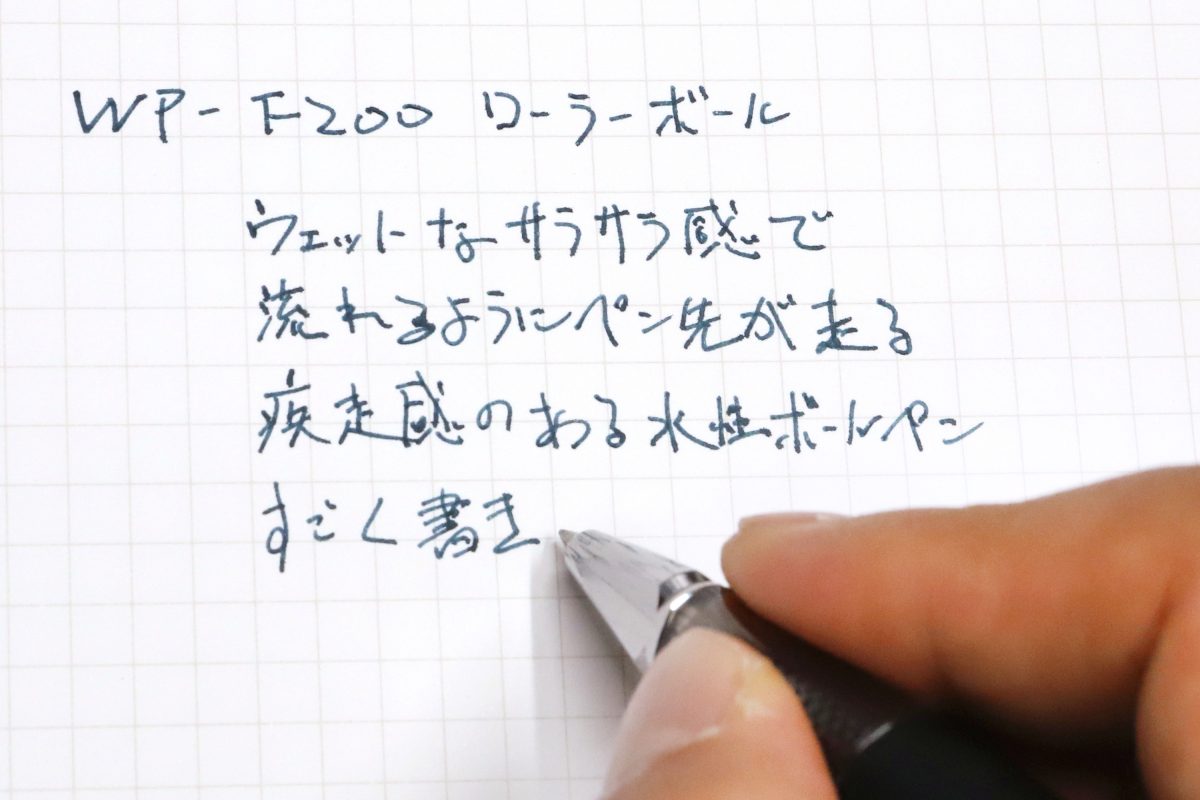 WP-F200 ローラーボール
ウェットなサラサラ感で
流れるようにペン先が走る
疾走感のある水性ボールペン
すごく書き